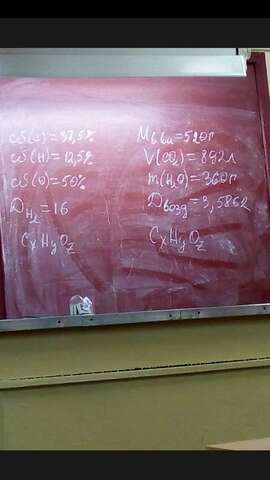 ω(C)=37,5%
ω(H)=12,5%
ω(O)=50%
D_H₂=16
CxHyOz
m в-ва=520г
V(CO₂)=892л
m(H₂O)=360г
D возд=3,5862
CxHyOz